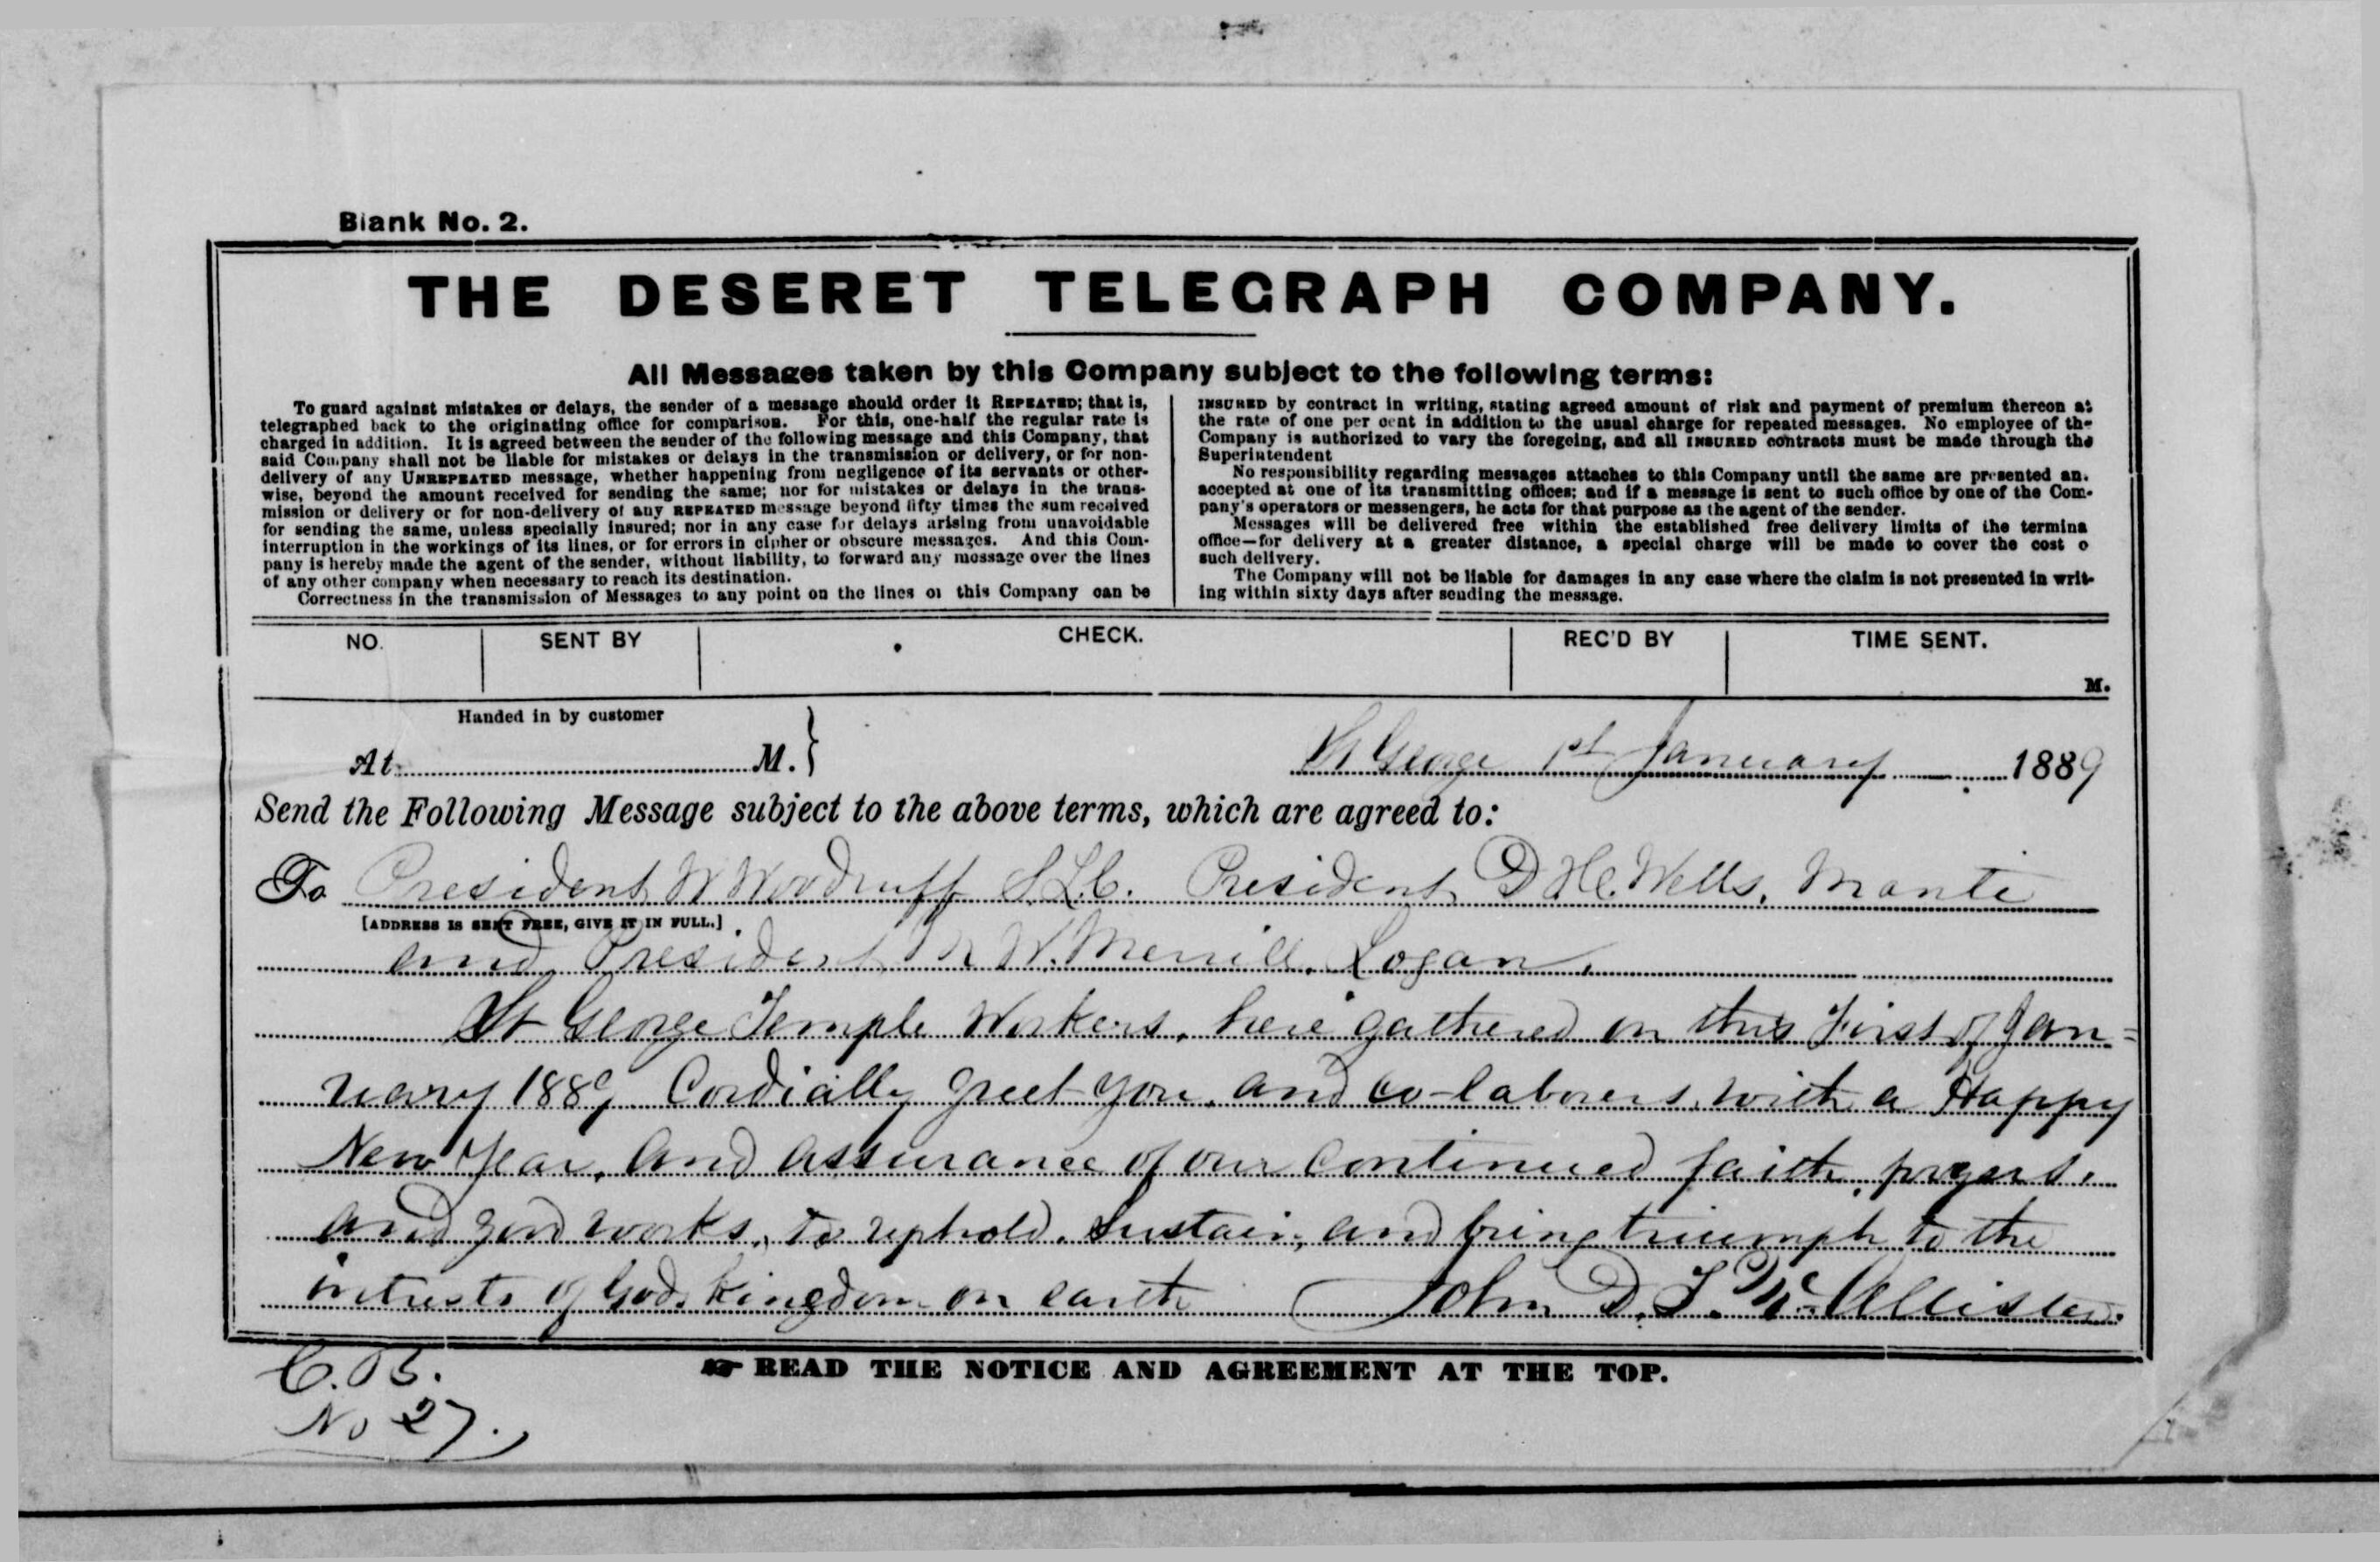 Blank No. 2.
THE DESERET TELEGRAPH COMPANY.
All Messages taken by this Company subject to the following terms:
To guard against mistakes or delays, the sender of a message should order it REPEATED; that is,
telegraphed back to the originating office for comparison. For this, one-half the regular rate is
charged in addition. It is agreed between the sender of the following message and this Company, that
said Company shall not be liable for mistakes or delays in the transmission or delivery, or for non-
delivery of any UNREPEATED message, whether happening from negligence of its servants or other-
wise, beyond the amount received for sending the same; nor for mistakes or delays in the trans-
mission or delivery or for non-delivery of any REPEATED message beyond fifty times the sum received
for sending the same, unless specially insured; nor in any case for delays arising from unavoidable
interruption in the workings of its lines, or for errors in cipher or obscure messages. And this Com-
pany is hereby made the agent of the sender, without liability, to forward any message over the lines
of any other company when necessary to reach its destination.
Correctness in the transmission of Messages to any point on the lines of this Company can be
INSURED by contract in writing, stating agreed amount of risk and payment of premium thereon at
the rate of one per cent in addition to the usual charge for repeated messages. No employee of the
Company is authorized to vary the foregoing, and all INSURED contracts must be made through the
Superintendent
No responsibility regarding messages attaches to this Company until the same are presented an.
accepted at one of its transmitting offices; and if a message is sent to such office by one of the Com-
pany's operators or messengers, he acts for that purpose as the agent of the sender.
Messages will be delivered free within the established free delivery limits of the termina
office—for delivery at a greater distance, a special charge will be made to cover the cost o
such delivery.
The Company will not be liable for damages in any case where the claim is not presented in writ-
ing within sixty days after sending the message.
NO. SENT BY CHECK. REC'D BY TIME SENT.
M.
Handed in by customer
At M. } St George 1st January 1889
Send the Following Message subject to the above terms, which are agreed to:
To President W Woodruff S.L.C. President D H. Wells, Manti
[ADDRESS IS SENT FREE, GIVE IT IN FULL.]
and President M W. Merrill, Logan,
St George Temple Workers, here gathered on this First of Jan=
uary 1889 Cordially greet you, and co-laborers, with a Happy
New Year, and assurance of our continued faith, prayers,
and good works, to uphold, sustain, and bring triumph to the
intrests of Gods kingdom on earth John D. T. McAllister.
☞ READ THE NOTICE AND AGREEMENT AT THE TOP.
C.B.
No 27.